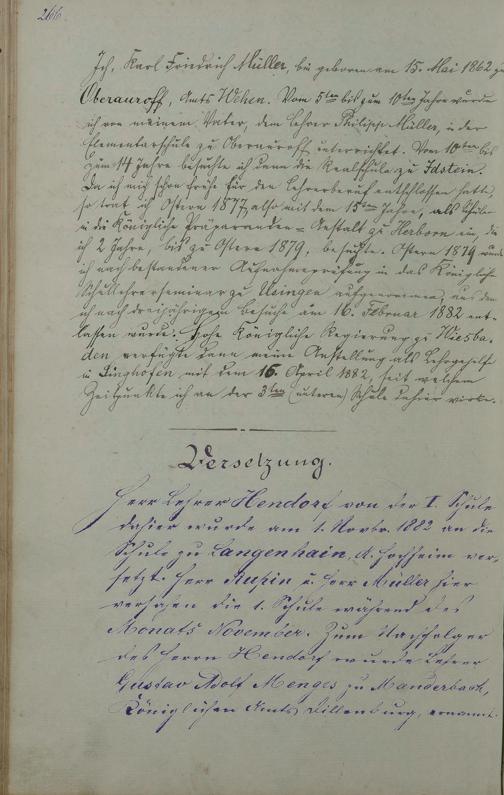 266.
Ich, Karl Friedrich Müller, bin geboren am 15. Mai 1862 zu
Oberauroff, Amts Wehen. Vom 5ten bis zum 10ten Jahre wurde
ich von meinem Vater, dem Lehrer Philipp Müller, in der
Elementarschule zu Oberauroff unterrichtet. Vom 10ten bis
zum 14 Jahre besuchte ich dann die Realschule zu Idstein.
Da ich mich schon frühe für den Lehrerberuf entschlossen hatte,
so trat ich Ostern 1877, also mit dem 15ten Jahre, als Schüler
in die Königliche Präparanden-Anstalt zu Herborn ein, die
ich 2 Jahre, bis zu Ostern 1879, besuchte. Ostern 1879 wurde
ich nach bestandener Aufnahmeprüfung in das Königliche
Schullehrerseminar zu Usingen aufgenommen, aus dem
ich nach dreijährigem Besuche am 16. Februar 1882 ent-
lassen wurde. Hohe Königliche Regierung zu Wiesba-
den verfügte dann meine Anstellung als Lehrgehilfe
in Singhofen mit dem 16. April 1882, seit welchem
Zeitpunkte ich an der 3ten (unteren) Schule dahier wirke.
Versetzung.
Herr Lehrer Hendorf von der I. Schule
dahier wurde am 1. Novbr. 1882 an die
Schule zu Langenhain, A. Hochheim ver-
setzt. Herr Rupin u. Herr Müller hier
versahen die 1. Schule während des
Monats November. Zum Nachfolger
des Herrn Hendorf wurde Lehrer
Gustav Adolf Menges zu Manderbach,
Königlichen Amts Dillenburg, ernannt.